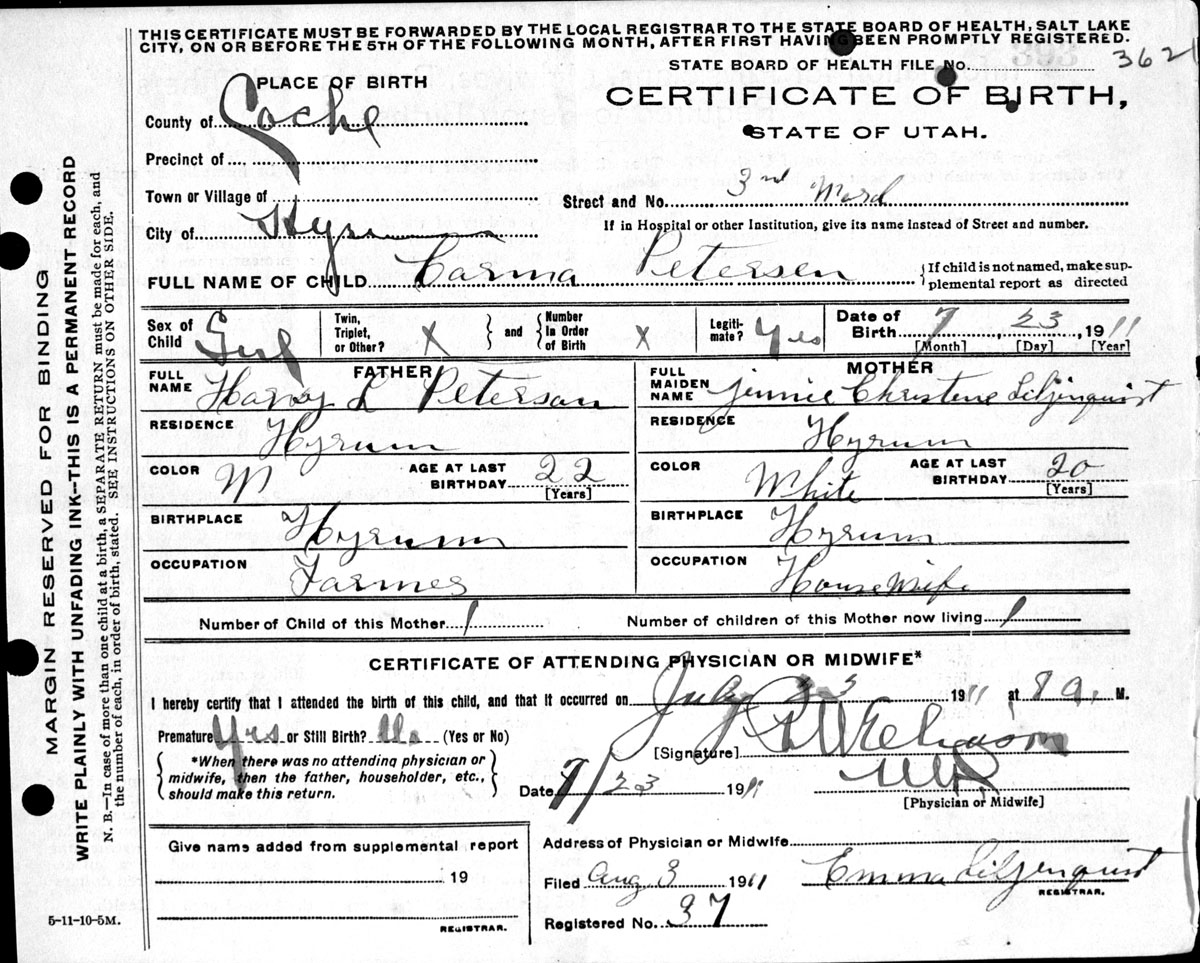 THIS CERTIFICATE MUST BE FORWARDED BY THE LOCAL REGISTRAR TO THE STATE BOARD OF HEALTH, SALT LAKE
CITY, ON OR BEFORE THE 5TH OF THE FOLLOWING MONTH, AFTER FIRST HAVING BEEN PROMPTLY REGISTERED.
STATE BOARD OF HEALTH FILE No. 3621
PLACE OF BIRTH
CERTIFICATE OF BIRTH,
STATE OF UTAH.
County of Cache
Precinct of
Town or Village of
Street and No. 3rd Ward
City of Hyrum
If in Hospital or other Institution, give its name instead of Street and number.
FULL NAME OF CHILD Carma Petersen {If child is not named, make sup-
plemental report as directed
Sex of Child Girl
Twin, Triplet, or Other? X } and { Number In Order of Birth X
Legiti-mate? Yes
Date of Birth 7, 23, 1911
[Month] [Day] [Year]
FATHER
FULL NAME Harvy L Peterson
RESIDENCE Hyrum
COLOR W AGE AT LAST BIRTHDAY 22
[Years]
BIRTHPLACE Hyrum
OCCUPATION Farmer
MOTHER
FULL MAIDEN NAME Jennie Christene Liljenquist
RESIDENCE Hyrum
COLOR White AGE AT LAST BIRTHDAY 20
[Years]
BIRTHPLACE Hyrum
OCCUPATION House Wife
Number of Child of this Mother 1 Number of children of this Mother now living 1
CERTIFICATE OF ATTENDING PHYSICIAN OR MIDWIFE*
I hereby certify that I attended the birth of this child, and that it occurred on July 23 1911 at 8 a. M.
Premature Yes or Still Birth? No (Yes or No)
[Signature]
*When there was no attending physician or
midwife, then the father, householder, etc.,
should make this return.
Date 7/23 1911
[Physician or Midwife]
Give name added from supplemental report
19
REGISTRAR.
Address of Physician or Midwife
Filed Aug 3 1911 Emma Liljenquist
REGISTRAR.
Registered No. 37
5-11-10-5M.
MARGIN RESERVED FOR BINDING
WRITE PLAINLY WITH UNFADING INK—THIS IS A PERMANENT RECORD
N. B.—In case of more than one child at a birth, a SEPARATE RETURN must be made for each, and
the number of each, in order of birth, stated. SEE INSTRUCTIONS ON OTHER SIDE.